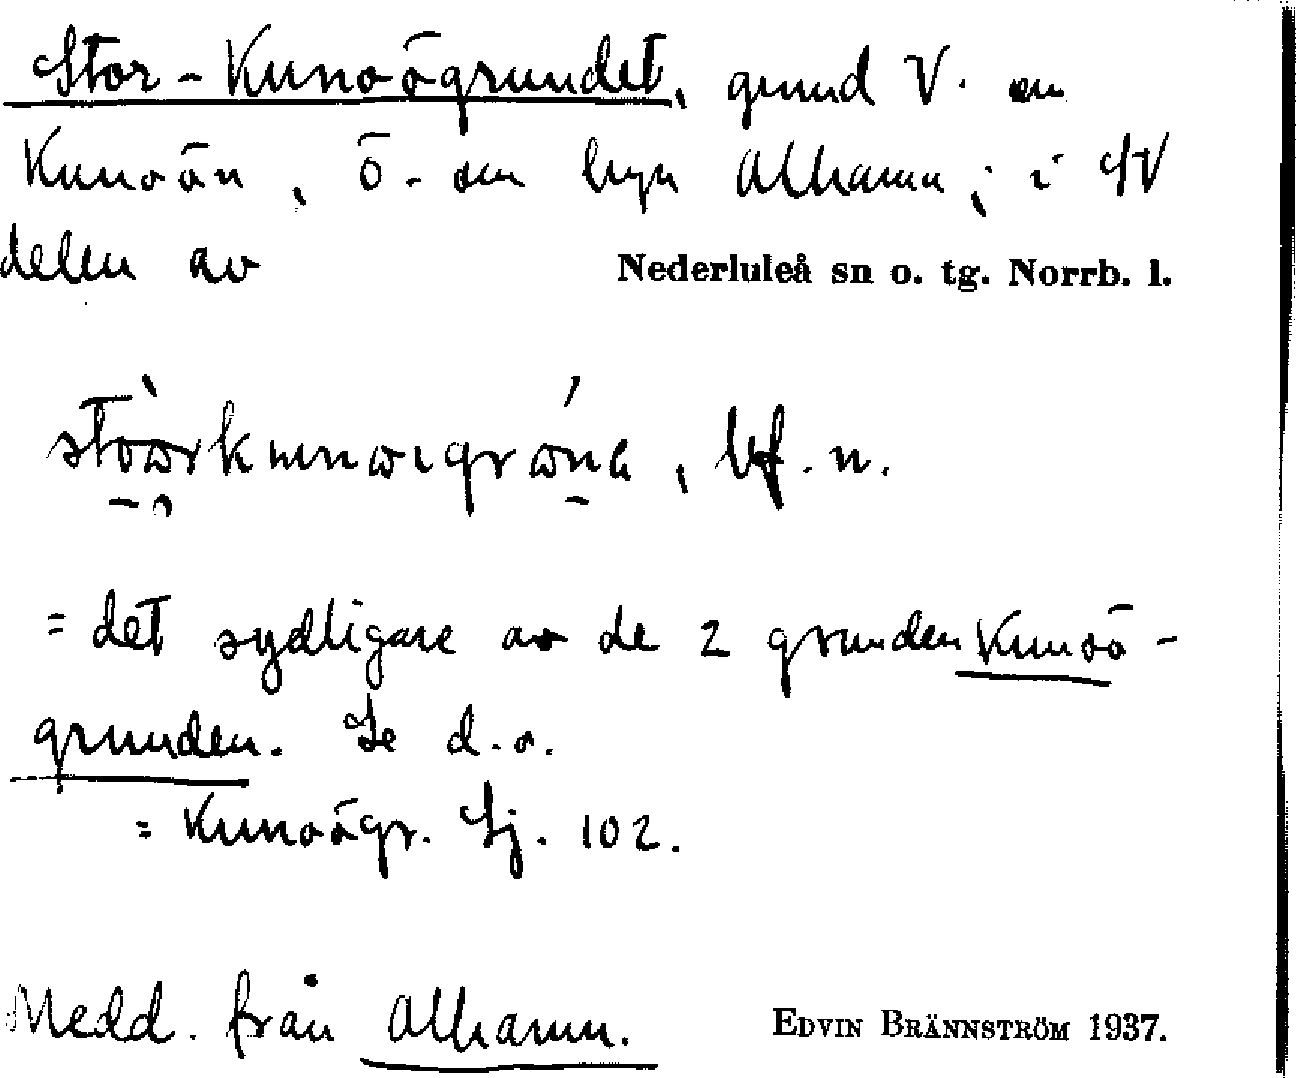 Stor-Kunoögrundet, grund V. om
Kunoön, Ö. om byn Alhamn, i SV
delen av Nederluleå sn o. tg. Norrb. l.
bf. n.
= det sydligare av de 2 grunden Kunoö-
grunden. Se d. o.
= Kunoögr. Sj. 102.
Medd. från Alhamn. EDVIN BRÄNNSTRÖM 1937.